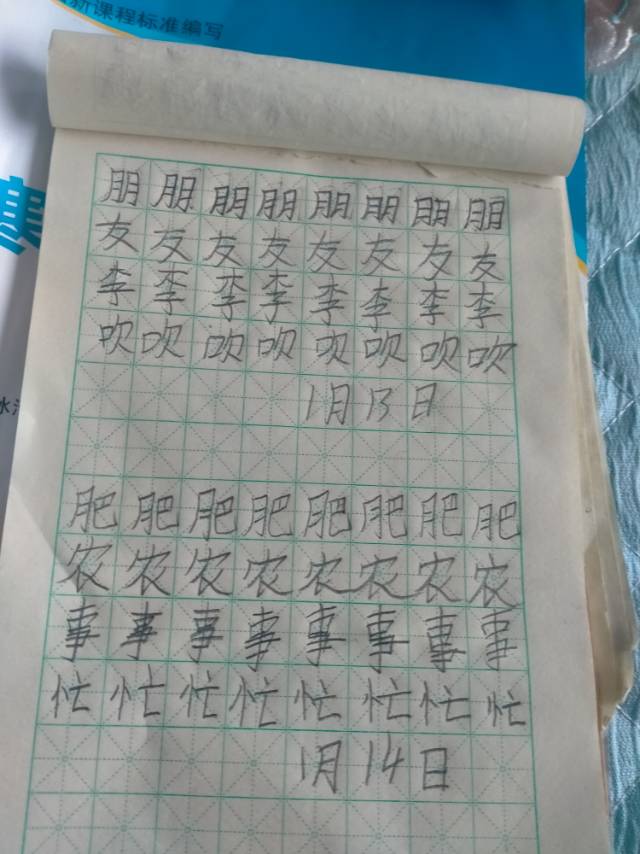 新课程标准编写
朋朋朋朋朋朋朋朋
友友友友友友友友
李李李李李李李李
吹吹吹吹吹吹吹吹
1月13日
肥肥肥肥肥肥肥肥
农农农农农农农农
事事事事事事事事
忙忙忙忙忙忙忙忙
1月14日